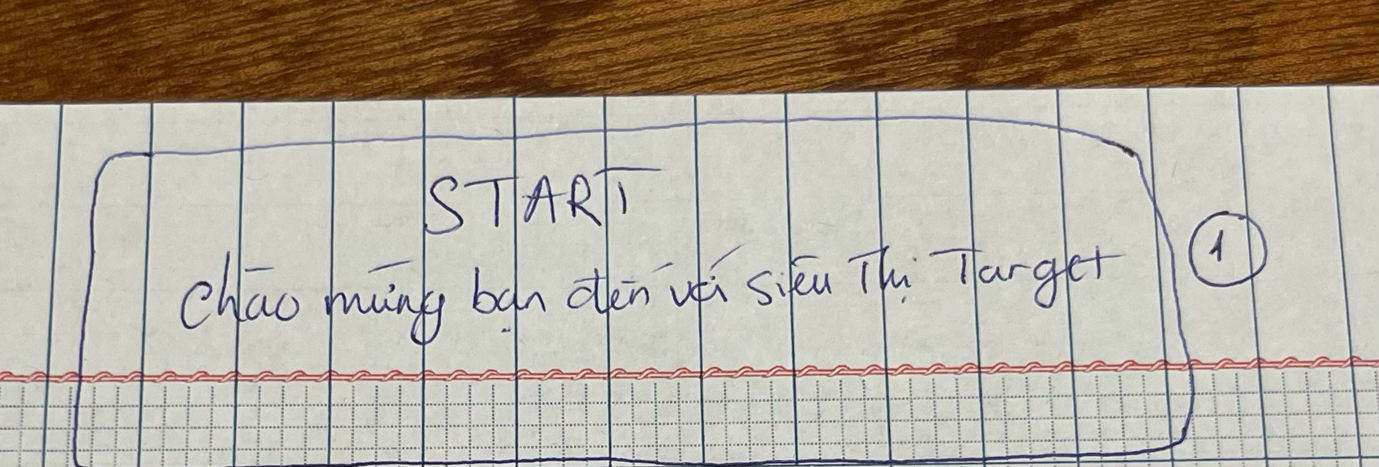 START
Chào mừng bạn đến với siêu Thị Target
1